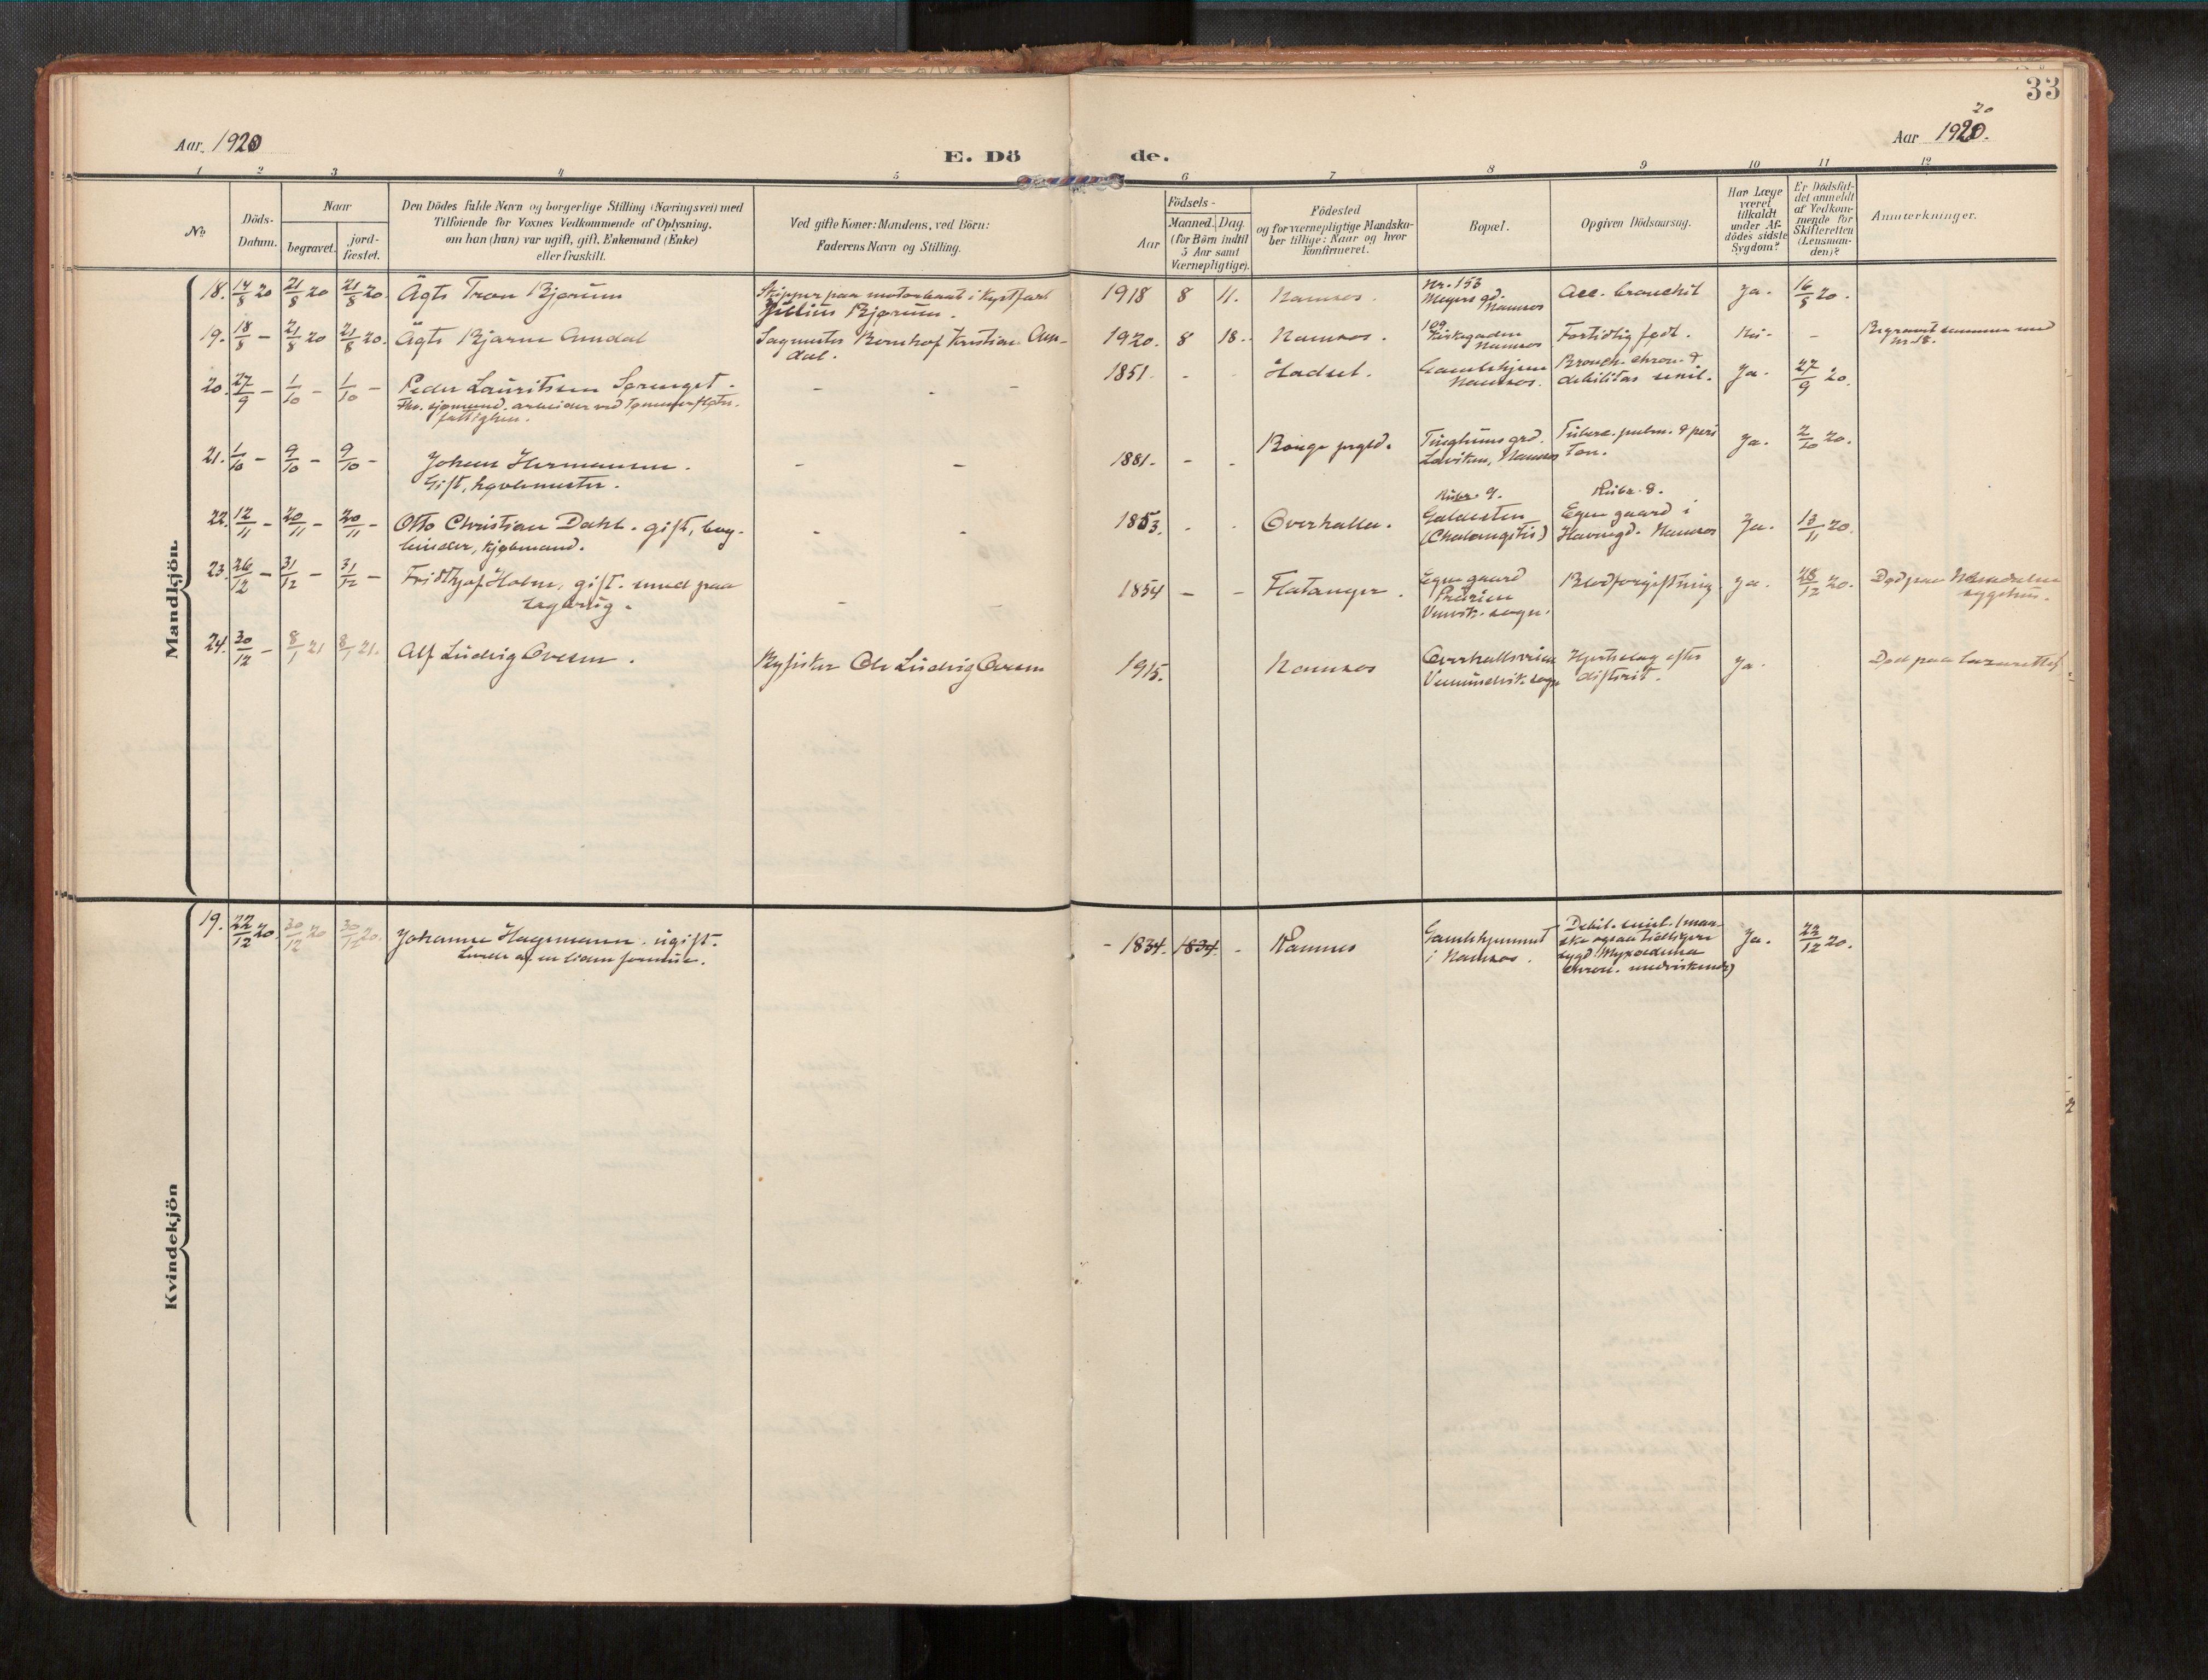 33
Aar 1920
E. Dö de.
20
Aar 1920.
1 2 3 4 5 6 7 8 9 10 11 12
No.
Döds-
Datum.
Naar
begravet.
jord-
fæstet.
Den Dödes fulde Navn og borgerlige Stilling (Næringsvei) med
Tilföiende for Voxnes Vedkommende af Oplysning,
om han (hun) var ugift, gift, Enkemand (Enke)
eller fraskilt.
Ved gifte Koner: Mandens, ved Börn:
Faderens Navn og Stilling.
Födsels-
Aar
Maaned. Dag.
(for Börn indtil
5 Aar samt
Værnepligtige).
Födested
og for værnepligtige Mandska-
ber tillige: Naar og hvor
konfirmeret.
Bopæl.
Opgiven Dödsaarsag.
Har Læge
været
tilkaldt
under Af-
dödes sidste
Sygdom?
Er Dödsfal-
det anmeldt
af Vedkom-
mende for
Skifteretten
(Lensman-
den)?
Anmærkninger.
Mandkjön
18. 14/8 20 21/8 20 21/8 20. Ägts Tron Bjørum
Skipper paa motorbaat i Kystfart
Julius Bjørum.
1918 8 11. Namsos.
Nr. 153
Meyers gd.
Namsos
Acc. bronchit Ja. 16/8 20.
19. 18/8 - 21/8 20 21/8 20. Ägts Bjarne Aundal
Sagmester Bernhof Kristian Aun-
dal.
1920. 8 18. Namsos.
109
Kirkegaden
Namsos
Fortidlig født. Nei -
Begravet sammen med
nr. 18.
20. 27/9 - 1/10 - 1/10 - Peder Lauritsen Sprenget.
Fhv. sjømand, arbeider ved Tømmerfløtn.
fattiglem.
- - -
1851. - - Hadsel.
Gamlehjem
Namsos.
Bronch. chron. &
debilitas senil. Ja. 27/9 20.
21. 1/10 - 9/10 - 9/10 - Johan Hermansen.
Gift, høvlemester.
- -
1881. - - prgld.
grd.
Namsos
Tuberc. pulm. & peri
ton. Ja. 2/10 20.
22. 12/11 - 20/11 - 20/11 - Otto Christian Dahl. gift, bog-
binder, kjøbmand.
- -
1853. - - Overhalla.
Rubr. 9.
Galdesten
(Cholangitis)
Rubr. 8.
Egen gaard i
Havnegd. Namsos Ja. 13/11 20.
23. 26/12 - 31/12 - 31/12 - Fridthjof Holm, gift. mand paa
- -
1854 - - Flatanger.
Egen gaard
Prærien
Vemvik. sogn.
Blodforgiftning Ja. 28/12 20.
Død paa Namdalens
sygehus.
24. 30/12 - 8/1 21 8/1 21. Alf Ludvig Ovesen.
Byfisker Ole Ludvig Ovesen
1915. Namsos
Overhallsveien
Vemundvik. sogn
Hjerteslag efter
difterit. Ja.
Død paa lazarettet
Kvindekjön
19. 22/12 20. 30/12 20 30/12 20. Johanne Hagemann. ugift.
Levede af en liden formue.
- 1834. 1834. - Namsos
Gamlehjemmet
i Namsos.
Debil. senil. (man-
ske ogsaa tidligere
sygd. Myxoedema
chron. medvirkende) Ja. 22/12 20.